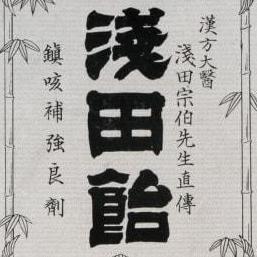 漢方大醫
淺田宗伯先生直傳
淺田飴
鎭咳補強良劑